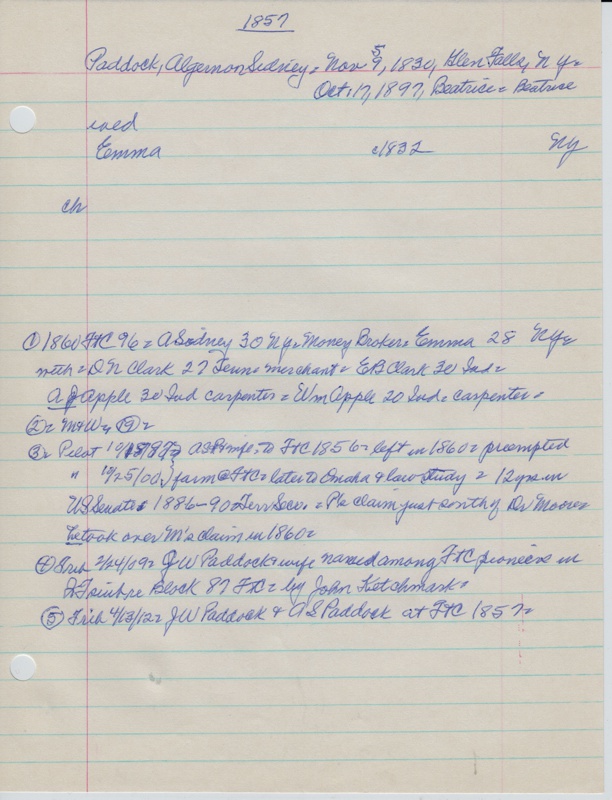 1857
Paddock, Algernon Sidney = Nov 9, 1830, Glen Falls, N Y =
5
Oct. 17, 1897, Beatrice = Beatrice
wed
Emma c1832 Ny
ch
① 1860 FtC 96 = A Sidney 30 Ny = Money Broker = Emma 28 Ny =
with = O N Clark 27 Tenn = merchant = E B Clark 30 Ind =
A J Apple 30 Ind carpenter = Wm Apple 20 Ind = carpenter =
② = M+W =
③ = Pilot AS to FtC 1856 = left in 1860 = preempted
" 10/25/00 } farm @ FtC = later to Omaha & law study = 12 yrs in
US Senate 1886-90 Terr Secy. = P's claim just south of Dr Moore =
he took over M's claim in 1860 =
④ Trib 2/24/09 = J W Paddock & wife named among FtC pioneers in
Block 87 FtC = by John Ketchmark =
⑤ Trib 4/13/12 = J W Paddock & A S Paddock at FtC 1857 =